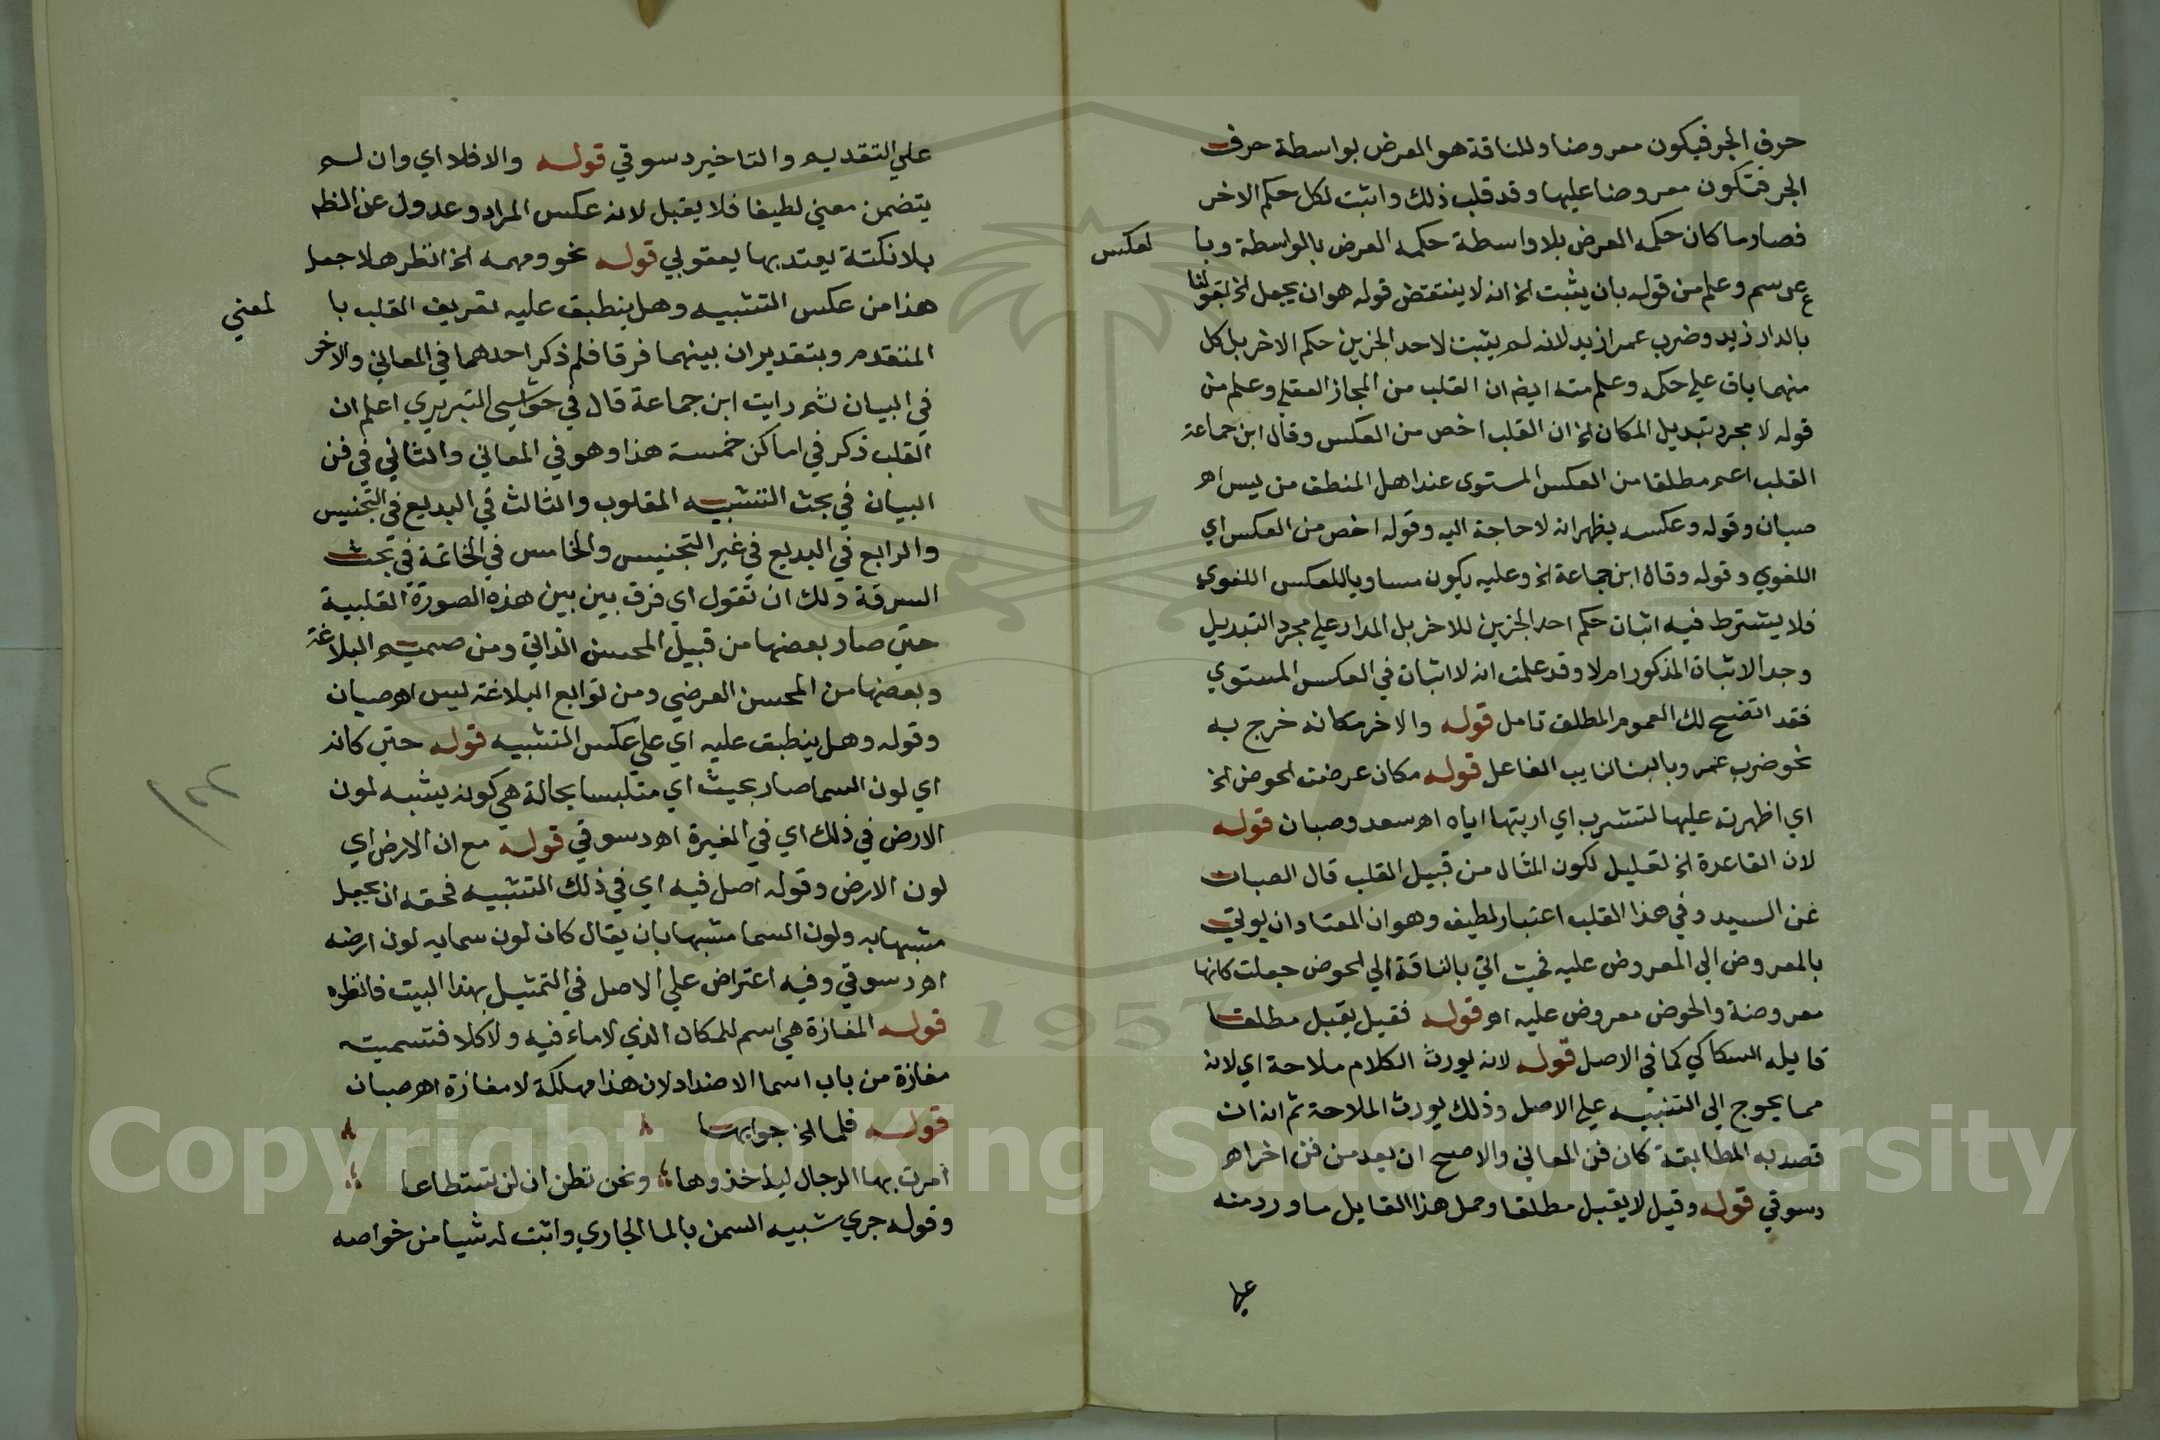 حرف الجر فيكون معروضا وللناقة هو العرض بواسطة حرف
الجر فتكون معروضا عليها وقد قلب ذلك واثبت لكل حكم الاخر
فصار ما كان حكمه العرض بلا واسطة حكمه العرض بالواسطة وبا
لعكس
ع سم وعلم من قوله بان يثبت الخ انه لا ينتقض قوله هو ان يجعل الخ بقولنا
بالدار زيد وضرب عمرا زيد لانه لم يثبت لاحد الجزين حكم الاخر بل كل
منهما باق علي حكمه وعلم منه ايضا ان القلب من المجاز العقلي وعلم من
قوله لا مجرد تبديل المكان الخ ان القلب اخص من العكس وقال ابن جماعة
القلب اعم مطلقا من العكس المستوى عند اهل المنطق من يس اهـ
صبان وقوله وعكسه يظهر انه لا حاجة اليه وقوله اخص من العكس اي
اللغوي وقوله وقال ابن جماعة الخ وعليه يكون مساويا للعكس اللغوي
فلا يشترط فيه اثبات حكم احد الجزين للاخر بل المدار علي مجرد التبديل
وجد الاثبات المذكور ام لا وقد علمت انه لا اثبات في العكس المستوي
فقد اتضح لك العموم المطلق تامل قوله والاخر مكانه خرج به
نحو ضرب عمرو بالبنا لنايب الفاعل قوله مكان عرضت الحوض الخ
اي اظهرته عليها لتشرب اي اريتها اياه اهـ سعد وصبان قوله
لان القاعدة الخ تعليل لكون المثال من قبيل القلب قال الصبان
عن السيد وفي هذا القلب اعتبار لطيف وهو ان المعتاد ان يوتي
بالمعروض الي المعروض عليه فحيث اتي بالناقة الي الحوض جعلت كانها
معروضة والحوض معروض عليه اهـ قوله فقيل يقبل مطلقا
قايله السكاكي كما في الاصل قوله لانه يورث الكلام ملاحة اي لانه
مما يحوج الي التنبيه علي الاصل وذلك يورث الملاحة ثم انه ان
قصد به المطابقة كان فن المعاني والاصح ان يعد من فن اخر اهـ
دسوقي قوله وقيل لا يقبل مطلقا وحمل هذا القايل ما ورد منه
علي
علي التقديم والتاخير دسوقي قوله والا فلا اي وان لم
يتضمن معني لطيفا فلا يقبل لانه عكس المراد وعدول عن الظم
بلا نكتة يعتد بها يعقوبي قوله نحو ومهمه الخ انظر هلا جعل
هذا من عكس التشبيه وهل ينطبق عليه تعريف القلب با
لمعني
المتقدم وبتقدير ان بينهما فرقا فلم ذكر احدهما في المعاني والاخر
في البيان ثم رايت ابن جماعة قال في حواشي التبريري اعلم ان
القلب ذكر في اماكن خمسة هذا وهو في المعاني والثاني في فن
البيان في بحث التشبيه المقلوب والثالث في البديع في التجنيس
والرابع في البديع في غير التجنيس والخامس في الخاتمة في بحث
السرقة ولك ان تقول اي فرق بين بين هذه الصورة القلبية
حتي صار بعضها من قبيل المحسن الذاتي ومن صميم البلاغة
وبعضها من المحسن العرضي ومن توابع البلاغة ليس اهـ صبان
وقوله وهل ينطبق عليه اي علي عكس التشبيه قوله حتي كانه
اي لون السما صار بحيث اي متلبسا بحالة هي كونه يشبه لون
الارض في ذلك اي في المغيرة اهـ دسوقي قوله مع ان الارض اي
لون الارض وقوله اصل فيه اي في ذلك التشبيه فحقه ان يجعل
مشبها به ولون السما مشبها بان يقال كان لون سمايه لون ارضه
اهـ دسوقي وفيه اعتراض علي الاصل في التمثيل بهذا البيت فانظره
قوله المفازة هي اسم للمكان الذي لا ماء فيه ولا كلا فتسميته
مفازة من باب اسما الاضداد لان هذا مهلكة لا مفازة اهـ صبان
قوله فلما الخ جوابها
امرت بها الرجال ليأخذوها ونحن نظن ان لن تستطاعا
وقوله جري شبيه السمن بالما الجاري واثبت له شيا من خواصه
Copyright © King Saud University
1957